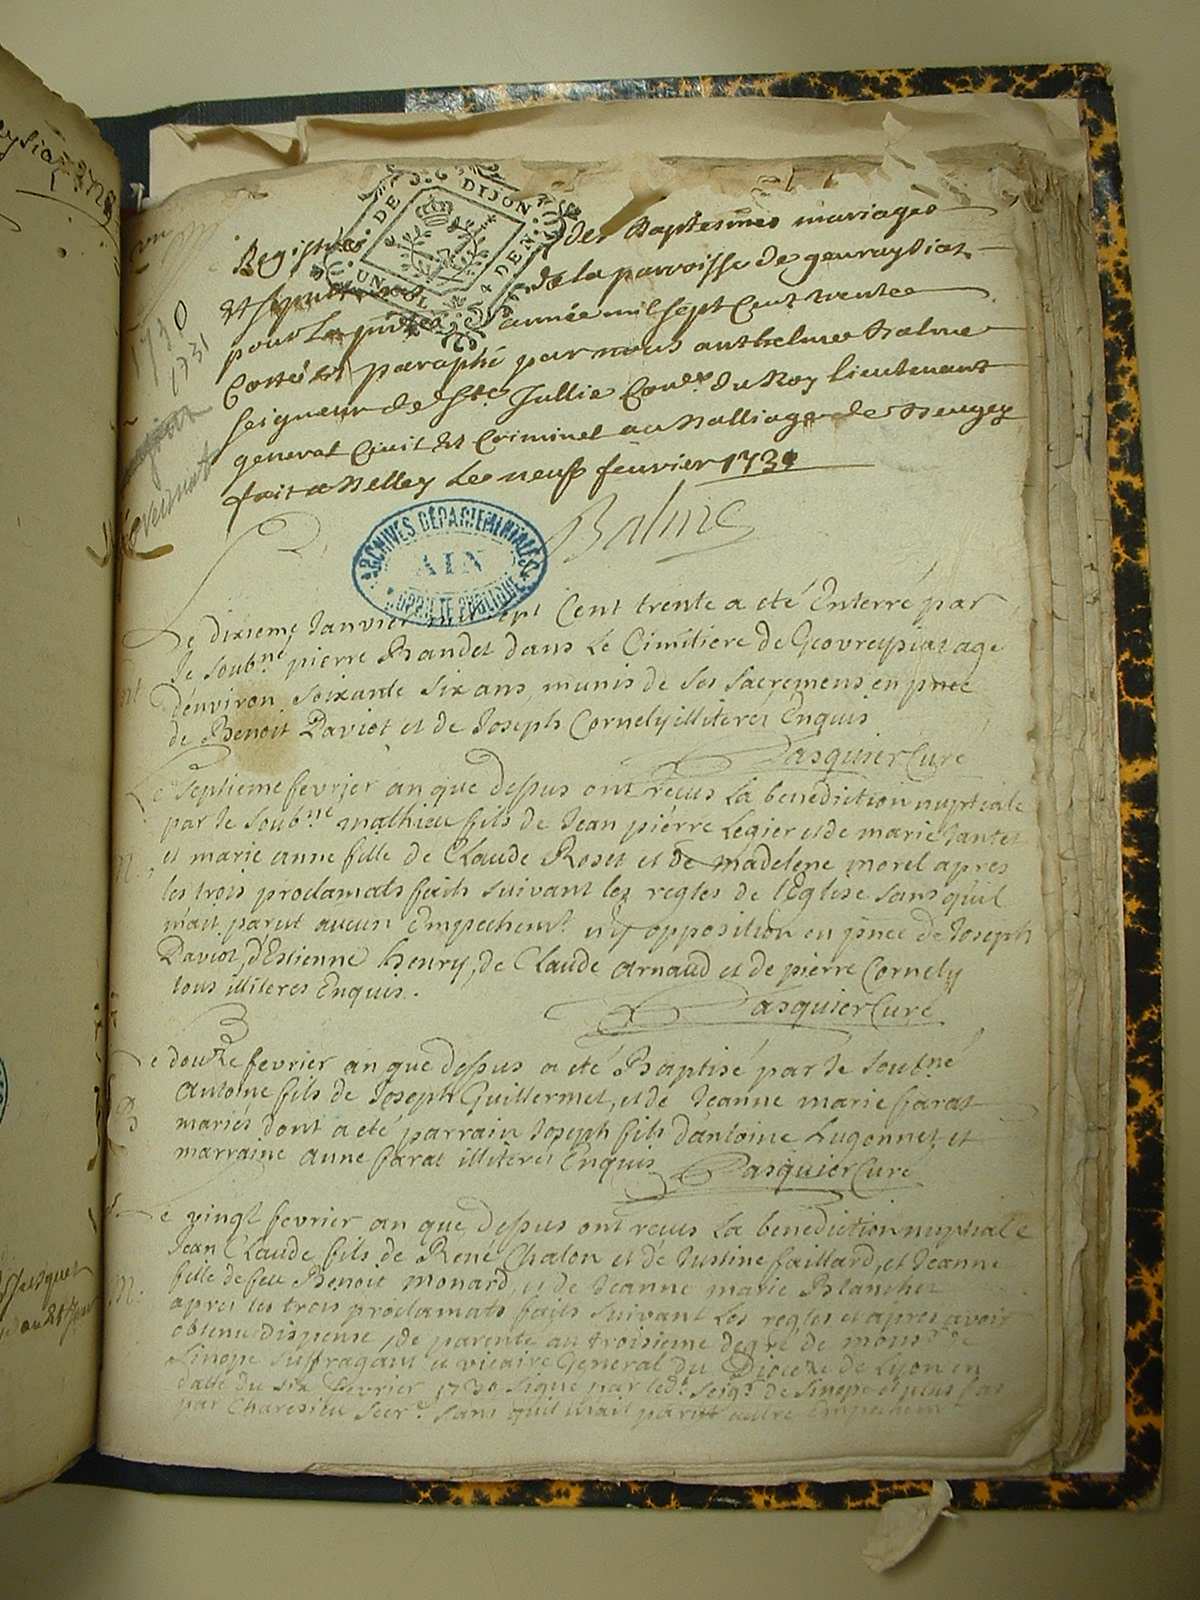 DE DIJON
UN SOL 4 DEN
Registre des Baptesmes mariages
et sepultures de la parroisse de geurayssiat
pour la presente année mil sept cent trente
Cotté et paraphé par nous anthelme Balme
seigneur de Ste Jullie Coner du Roy lieutenant
general Civil et Criminel au Balliage de Beugey
fait a Belley Le neuf feuvrier 1730
Balme
1730
1731
ARCHIVES DÉPARTEMENTALES
AIN
PROPRIÉTÉ PUBLIQUE
Le dixieme Janvier mil sept Cent trente a été Enterré par
Je soubne pierre Bandet dans Le Cimitiere de Geovreysiat agé
d'environ soixante six ans, munis de ses sacremens en pnce
de Benoit Daviot et de Joseph Cornely illiterés Enquis
Pasquier Curé
Le septieme fevrier an que dessus ont reçus La benediction nuptiale
par Je soubne mathieu fils de Jean pierre Legier et de marie Jantet
et marie anne fille de Claude Roset et de madelene morel apres
les trois proclamats faits suivant les regles de l'Eglise sans qu'il
n'ait parut aucun Empechemt ny opposition en pnce de Joseph
Daviot, d'Estienne henry, de Claude arnaud et de pierre Cornely
tous illiteres Enquis.
Pasquier Curé
B
Le douze fevrier an que dessus a été Baptisé par Je soubné
Antoine fils de Joseph Guillermet, et de Jeanne marie farat
mariés dont a été parrain Joseph fils d'antoine Lugonnet et
marraine anne farat illiteres Enquis Pasquier Curé
M.
Le vingt fevrier an que dessus ont reçus La benediction nuptiale
Jean Claude fils de René Chalon et de Justine faillard, et Jeanne
fille de feu Benoit monard, et de Jeanne marie Blanchet
apres les trois proclamats faits suivant Les regles et apres avoir
obtenu dispense de parenté au troisieme degré de monsr de
Sinope suffragant et vicaire General du Dioceze de Lyon en
datte du six fevrier 1730 signé par ledt seigr de Sinope et plus bas
par Charesieu secre sans qu'il n'ait parut autre Empechemt